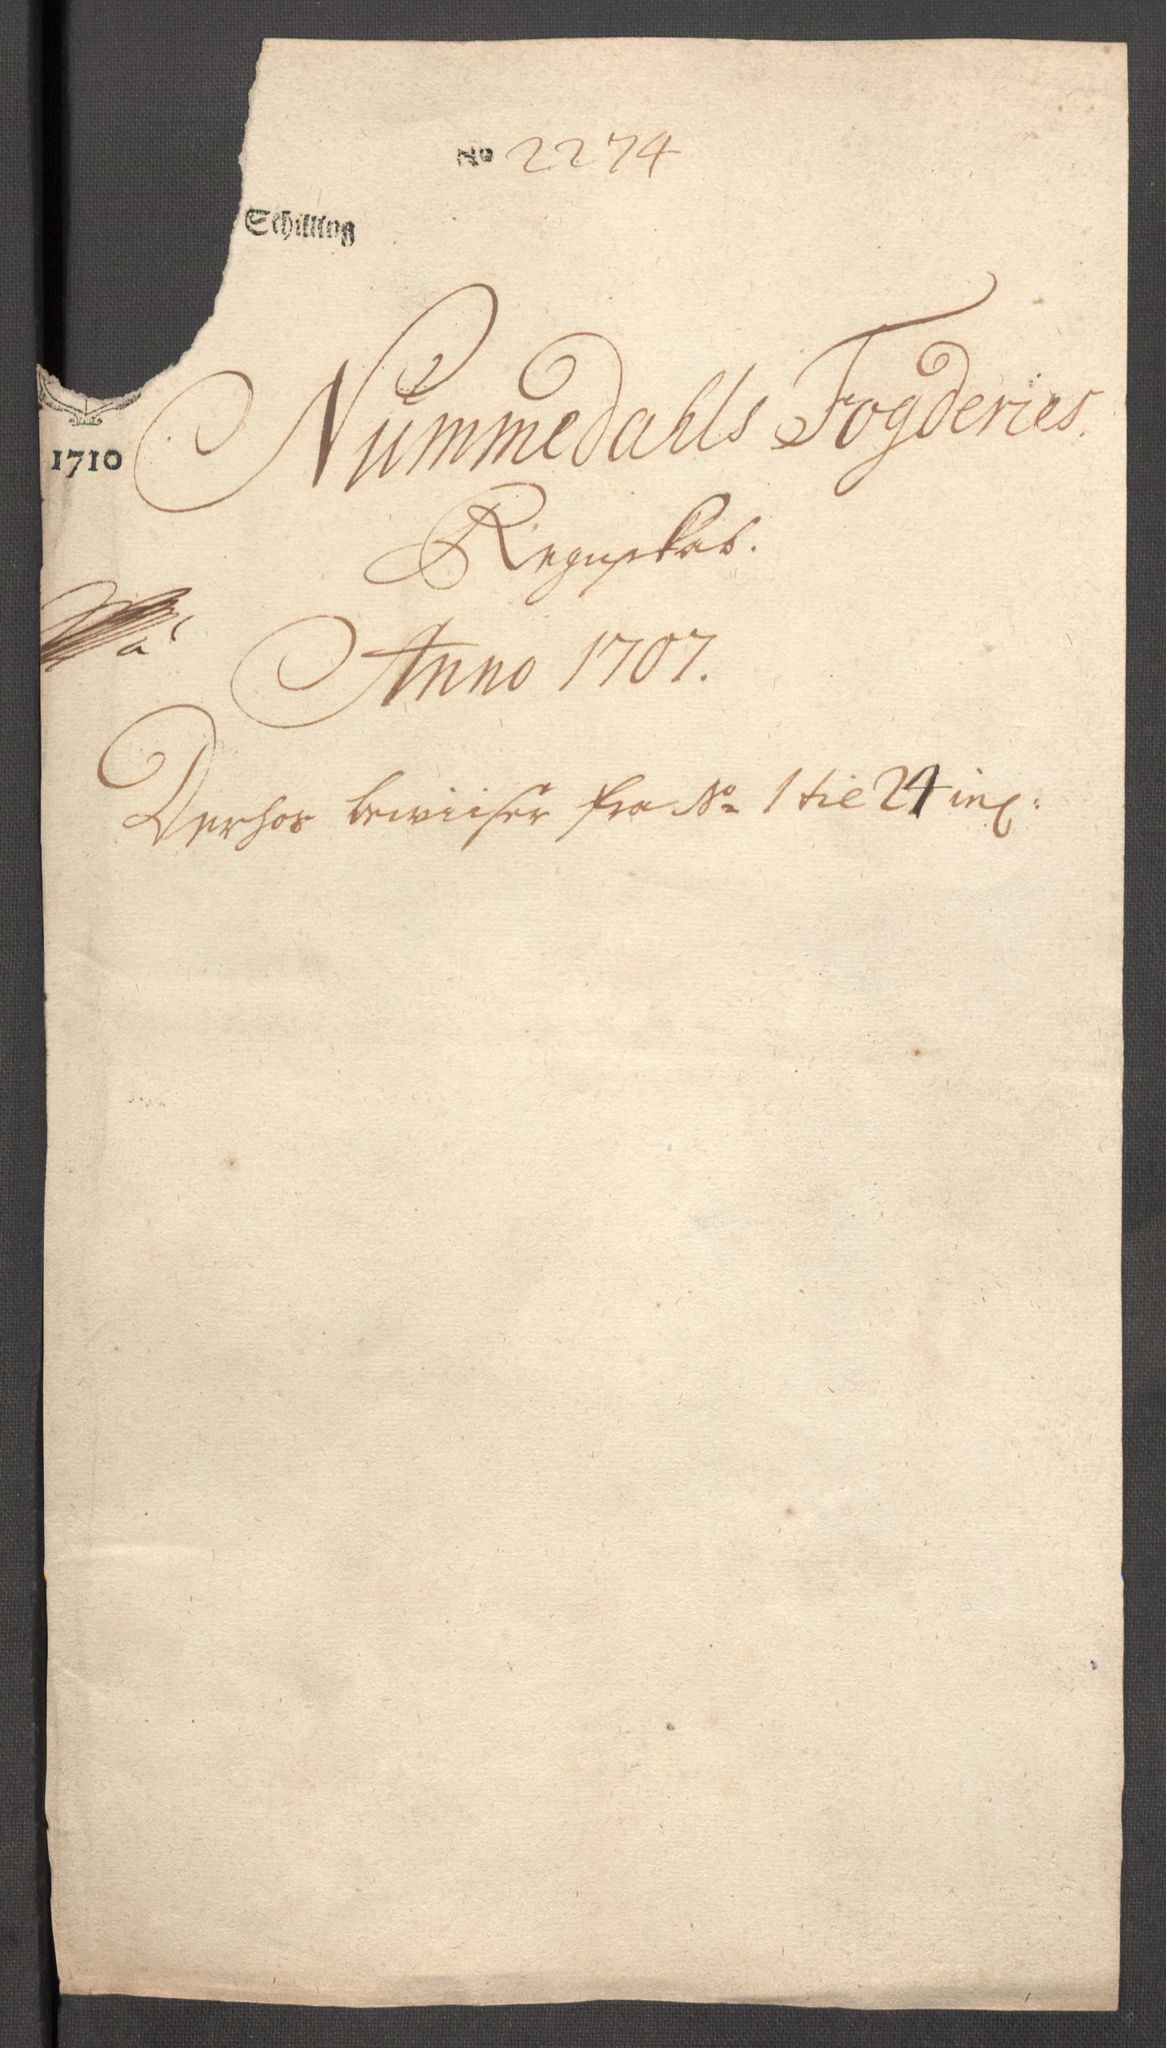 No 2274
Schilling
1710
Nummedahls Fogderies.
Regnskab.
Anno 1707.
Derhos bewiiser fra No 1 til 24 inc: